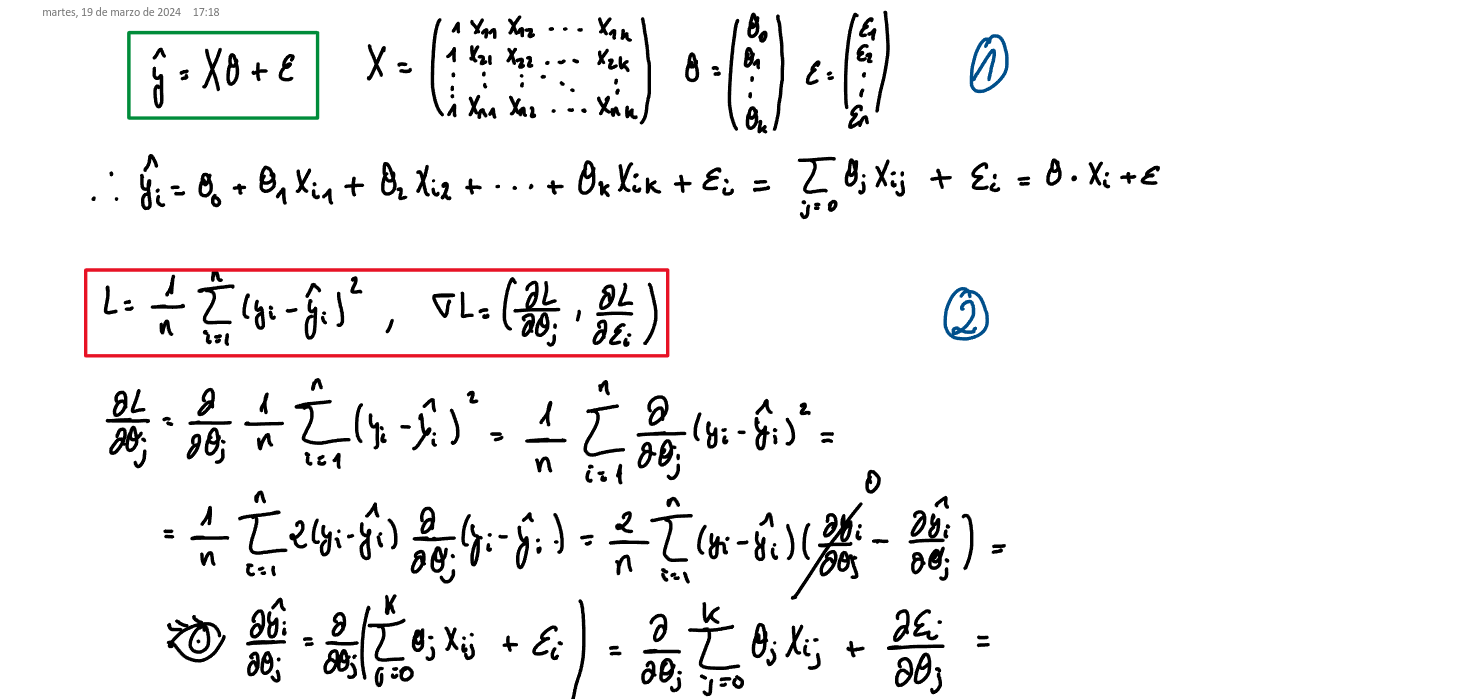 martes, 19 de marzo de 2024 17:18
ŷ = Xθ + ε X = ( 1 x₁₁ x₁₂ ... x₁ₖ ; 1 x₂₁ x₂₂ ... x₂ₖ ; ⋮ ⋮ ⋮ ⋱ ⋮ ; 1 xₙ₁ xₙ₂ ... xₙₖ ) θ = ( θ₀ ; θ₁ ; ⋮ ; θₖ ) ε = ( ε₁ ; ε₂ ; ⋮ ; εₙ ) ①
∴ ŷᵢ = θ₀ + θ₁ xᵢ₁ + θ₂ xᵢ₂ + ... + θₖ xᵢₖ + εᵢ = ∑_{j=0} θⱼ xᵢⱼ + εᵢ = θ · xᵢ + ε
L = 1/n ∑_{i=1}^{n} (yᵢ - ŷᵢ)² , ∇L = ( ∂L/∂θⱼ , ∂L/∂εᵢ ) ②
∂L/∂θⱼ = ∂/∂θⱼ 1/n ∑_{i=1}^{n} (yᵢ - ŷᵢ)² = 1/n ∑_{i=1}^{n} ∂/∂θⱼ (yᵢ - ŷᵢ)² =
= 1/n ∑_{i=1}^{n} 2(yᵢ - ŷᵢ) ∂/∂θⱼ (yᵢ - ŷᵢ) = 2/n ∑_{i=1}^{n} (yᵢ - ŷᵢ) ( ∂yᵢ/∂θⱼ 0 - ∂ŷᵢ/∂θⱼ ) =
∂ŷᵢ/∂θⱼ = ∂/∂θⱼ ( ∑_{j=0}^{K} θⱼ xᵢⱼ + εᵢ ) = ∂/∂θⱼ ∑_{j=0}^{K} θⱼ xᵢⱼ + ∂εᵢ/∂θⱼ =